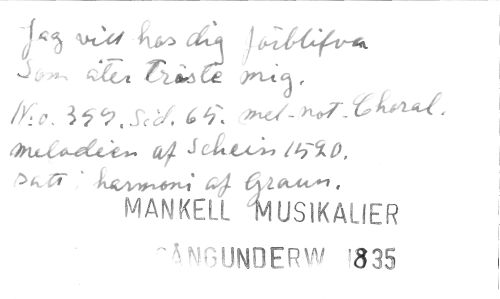 Jag vill hos dig förblifva
Som åter tröste mig.
No. 399. Sid. 65. mel-not-Choral.
melodien af Schein 1590.
satt i harmoni af Graun.
MANKELL MUSIKALIER
SÅNGUNDERW 1835